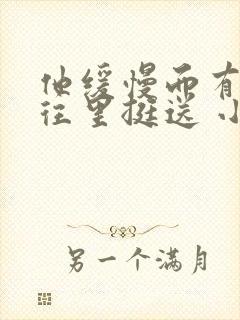 他缓慢而有
往里挺送 小
另一个满月